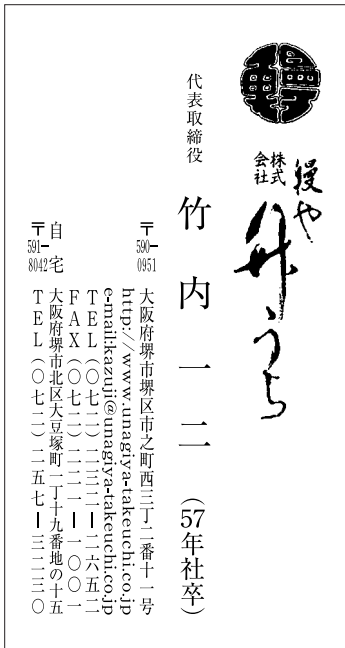 鰻や
株式会社
竹うち
代表取締役
竹内一二
(57年社卒)
〒590-0951
大阪府堺市堺区市之町西三丁二番十一号
http://www.unagiya-takeuchi.co.jp
e-mail:kazuji@unagiya-takeuchi.co.jp
TEL(〇七二)二三二ー二六五二
FAX(〇七二)二二一ー一〇〇一
自宅
〒591-8042
大阪府堺市北区大豆塚町一丁十九番地の十五
TEL(〇七二)二五七ー三二三〇